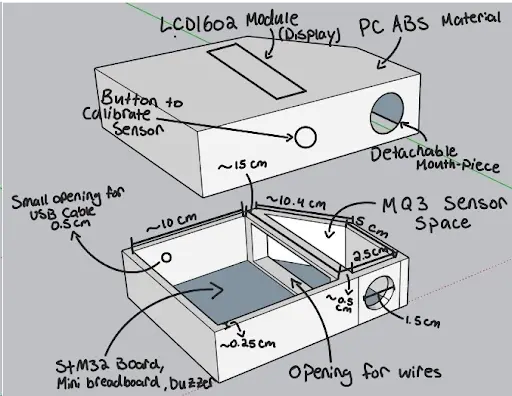 LCD1602 Module
(Display)
PC ABS Material
Button to
Calibrate
Sensor
Detachable
Mouth-Piece
~15 cm
Small opening for
USB Cable
0.5cm
~10 cm
~10.4 cm
MQ3 Sensor
Space
5 cm
2.5cm
~0.5
cm
1.5cm
~0.25cm
STM32 Board,
Mini breadboard, buzzer
Opening for wires